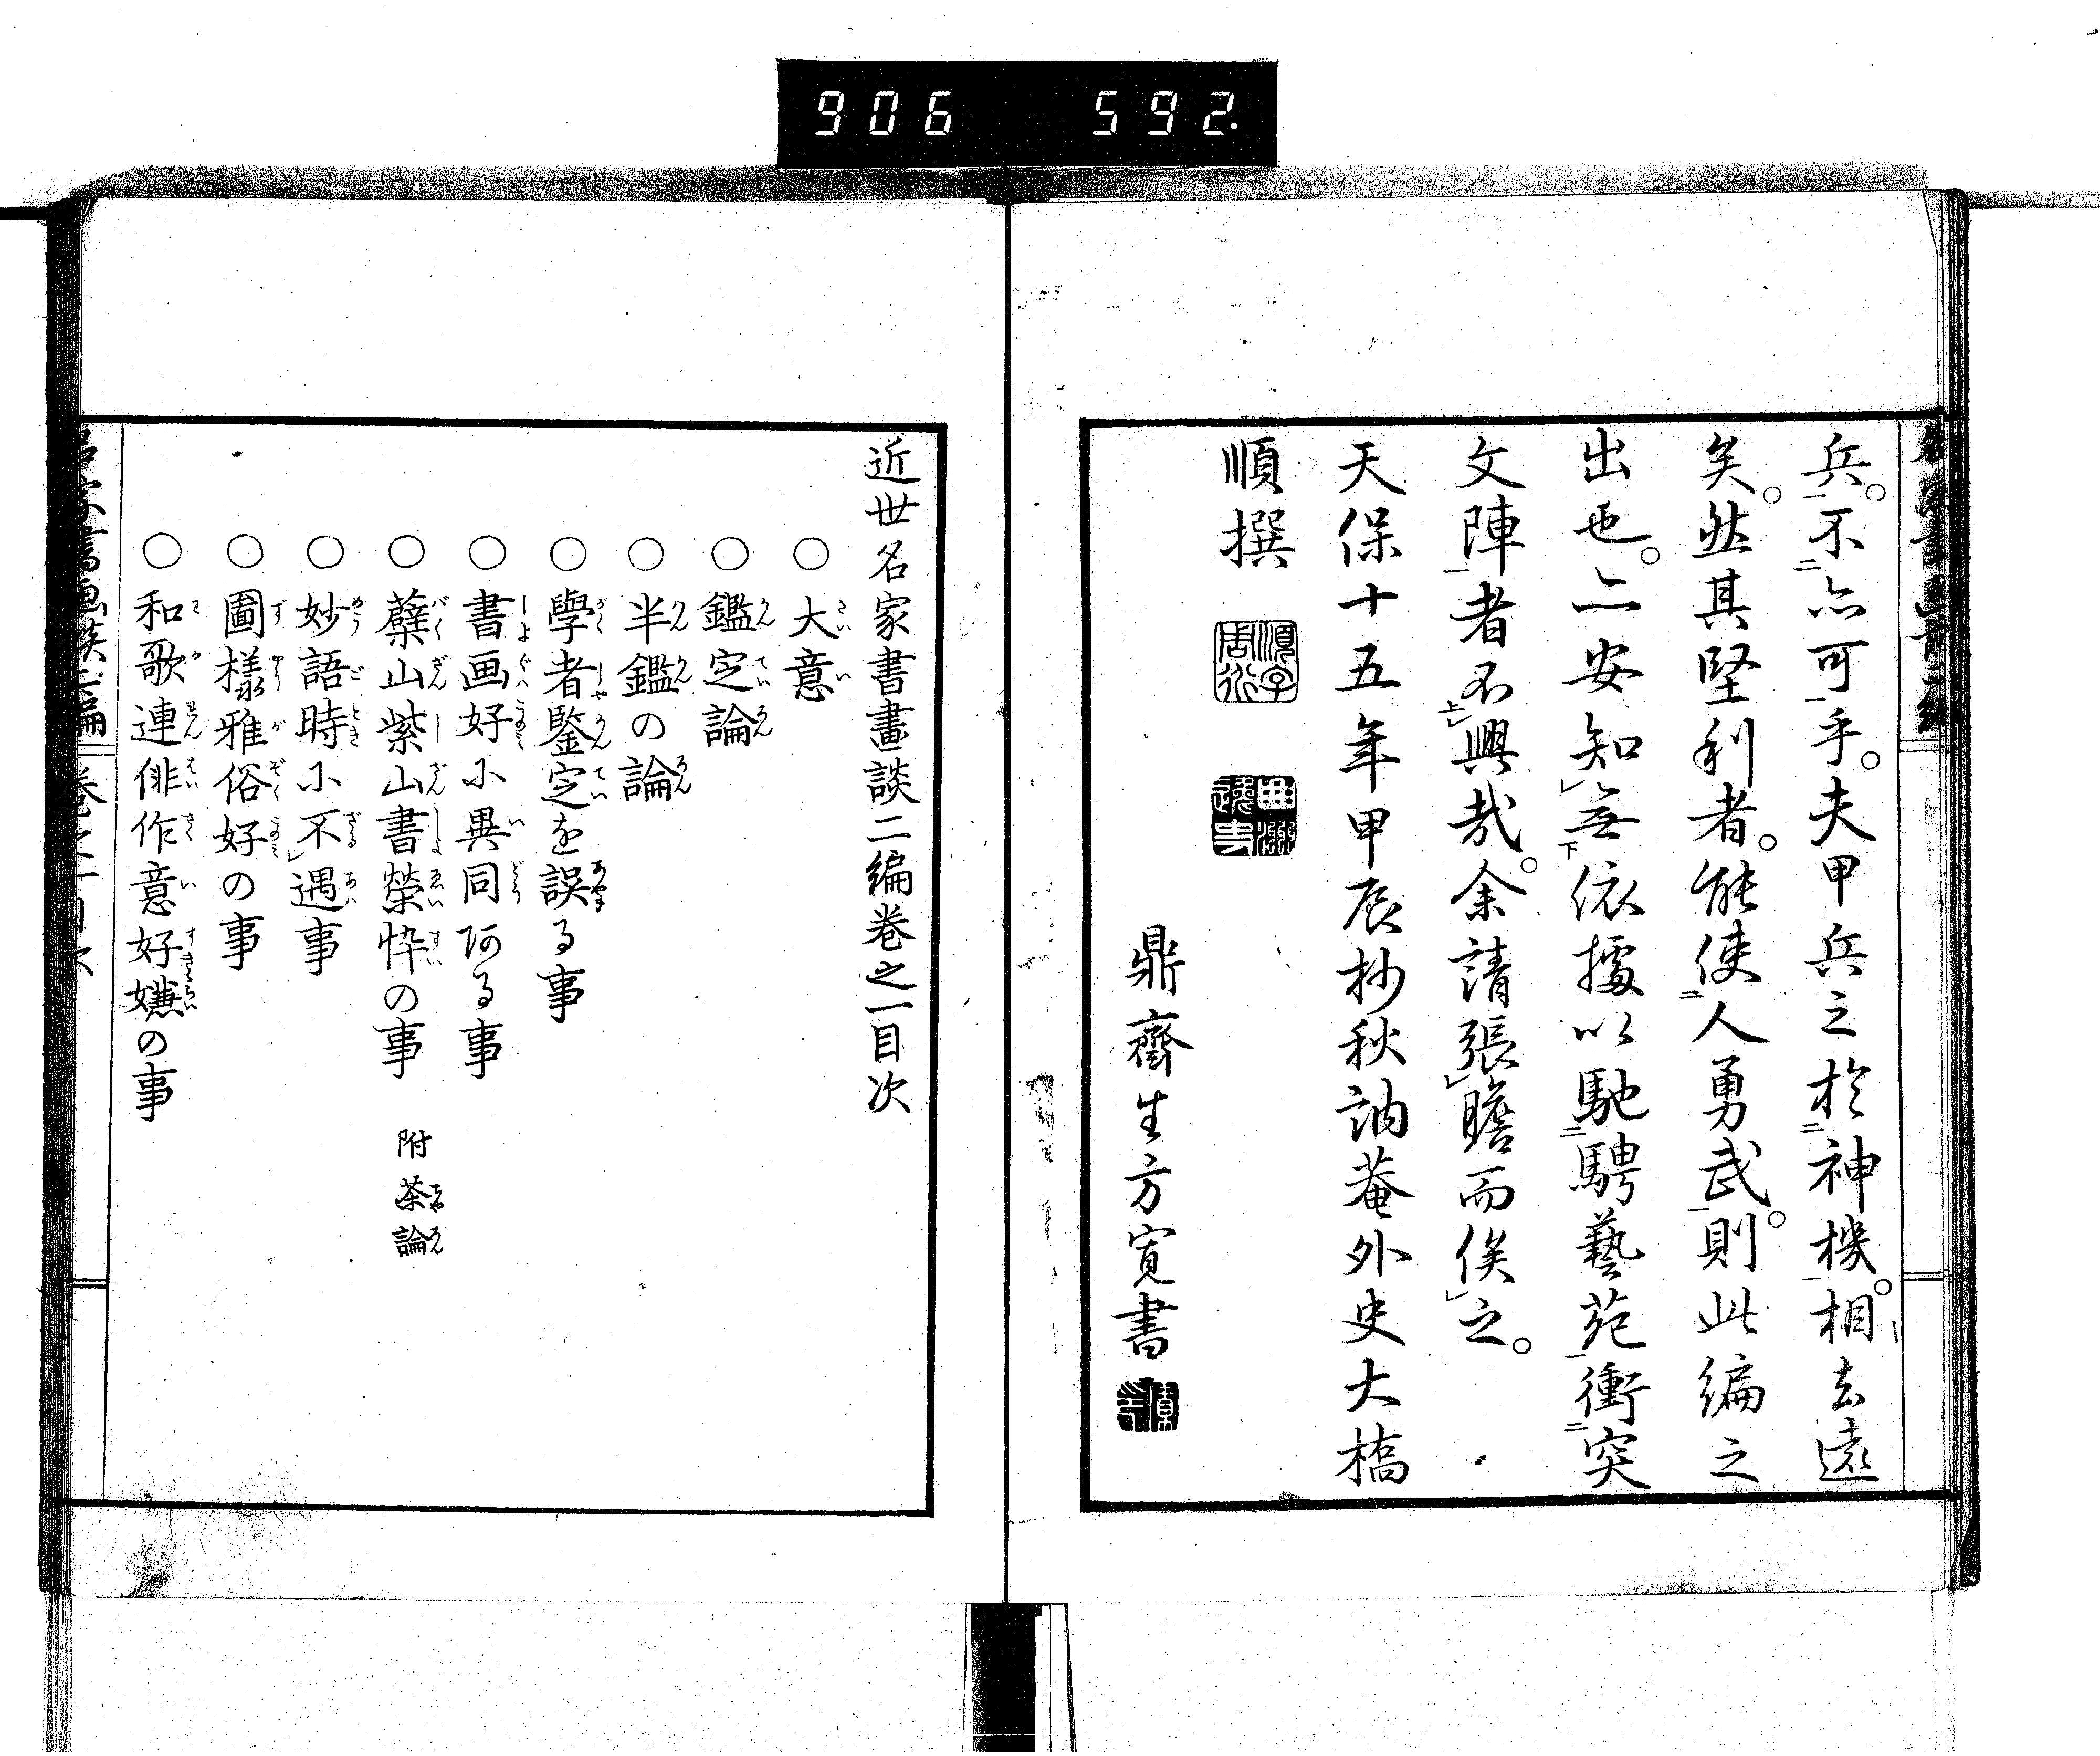 906 592.
兵。不亦可乎。夫甲兵之於神機。相去遠
矣。然其堅利者。能使人勇武。則此編之
出也。亦安知無依據以馳騁藝苑衝突
文陣者不興哉。余請張瞻而俟之。
天保十五年甲辰抄秋訥菴外史大橋
順撰
鼎齋生方寛書
近世名家書畫談二編巻之一目次
○大意
○鑑定論
○半鑑の論
○學者鑒定を誤る事
○書画好に異同ある事
○蘗山紫山書榮悴の事 附茶論
○妙語時に不遇事
○圖樣雅俗好の事
○和歌連俳作意好嫌の事